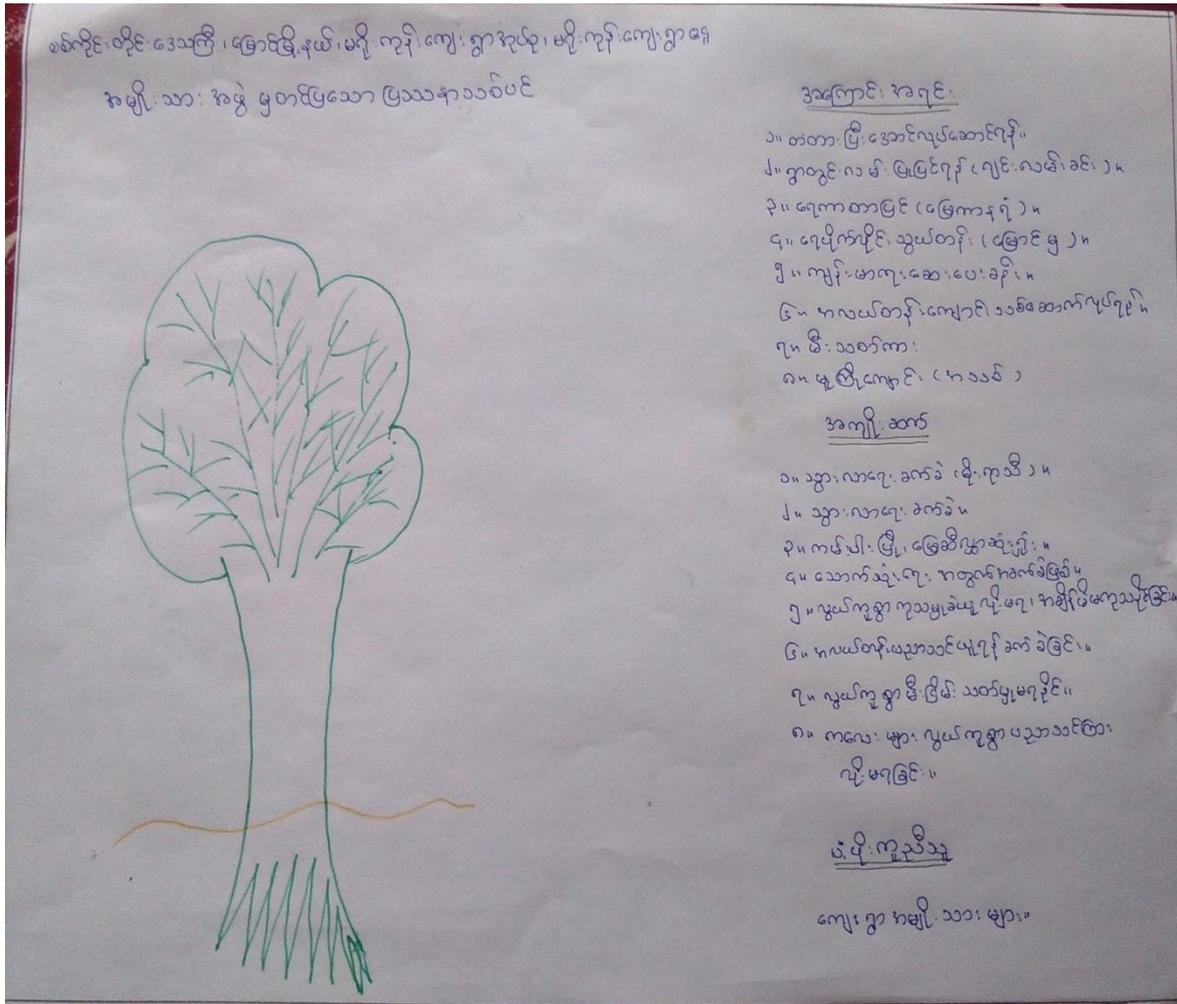 စစ်ကိုင်းတိုင်းဒေသကြီး၊ မြောင်မြို့နယ်၊ မရိုးကုန်းကျေးရွာအုပ်စု၊ မရိုးကုန်းကျေးရွာနေ
အမျိုးသားအဖွဲ့မှတင်ပြသော ပြဿနာသစ်ပင်
အကြောင်းအရင်း
၁။ တံတားပြီးအောင်လုပ်ဆောင်ရန်။
၂။ ရွာတွင်းလမ်းပြုပြင်ရန် (ဂျင်းလမ်းခင်း)။
၃။ ရေကာတာပြင် (မြေကာနရံ)။
၄။ ရေပိုက်လိုင်းသွယ်တန်း (မြောင်မှ)။
၅။ ကျန်းမာရေးဆေးပေးခန်း။
၆။ အလယ်တန်းကျောင်းသစ်ဆောက်လုပ်ရန်။
၇။ မီးသတ်ကား
၈။ မူကြိုကျောင်း (အသစ်)
အကျိုးဆက်
၁။ သွားလာရေးခက်ခဲ (မိုးရာသီ)။
၂။ သွားလာရေးခက်ခဲ။
၃။ ကမ်းပါးပြို၊ မြေဆီလွှာဆုံးရှုံး။
၄။ သောက်သုံးရေးအတွက်အခက်ခဲဖြစ်။
၅။ လွယ်ကူစွာကုသမှုခံယူလို့မရ၊ အချိန်မီမကုသနိုင်ခြင်း။
၆။ အလယ်တန်းပညာသင်ယူရန်ခက်ခဲခြင်း။
၇။ လွယ်ကူစွာမီးငြိမ်းသတ်မှုမရနိုင်။
၈။ ကလေးများလွယ်ကူစွာပညာသင်ကြား
လို့မရခြင်း။
ပံ့ပိုးကူညီသူ
ကျေးရွာအမျိုးသားများ။